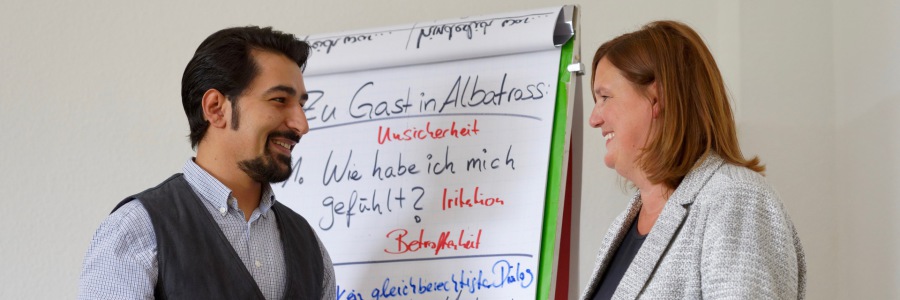 Zu Gast in Albatross:
Unsicherheit
1. Wie habe ich mich
gefühlt? Irritation
Betroffenheit
kein gleichberechtigter Dialog